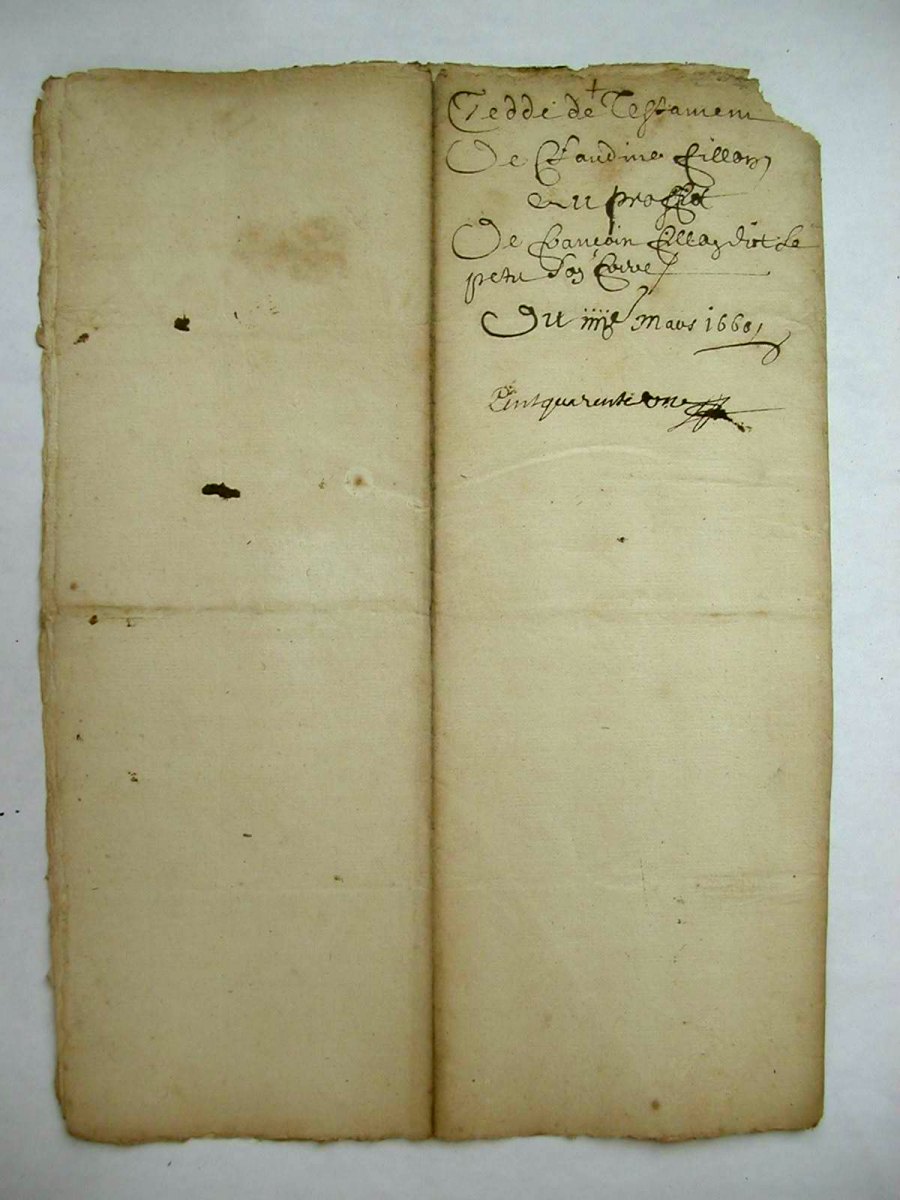 Tedde de Testament
De Claudine fillon
au proffict
De françois fillon dict Le
petit
Du iiiie Mars 1660
Cent quarente une